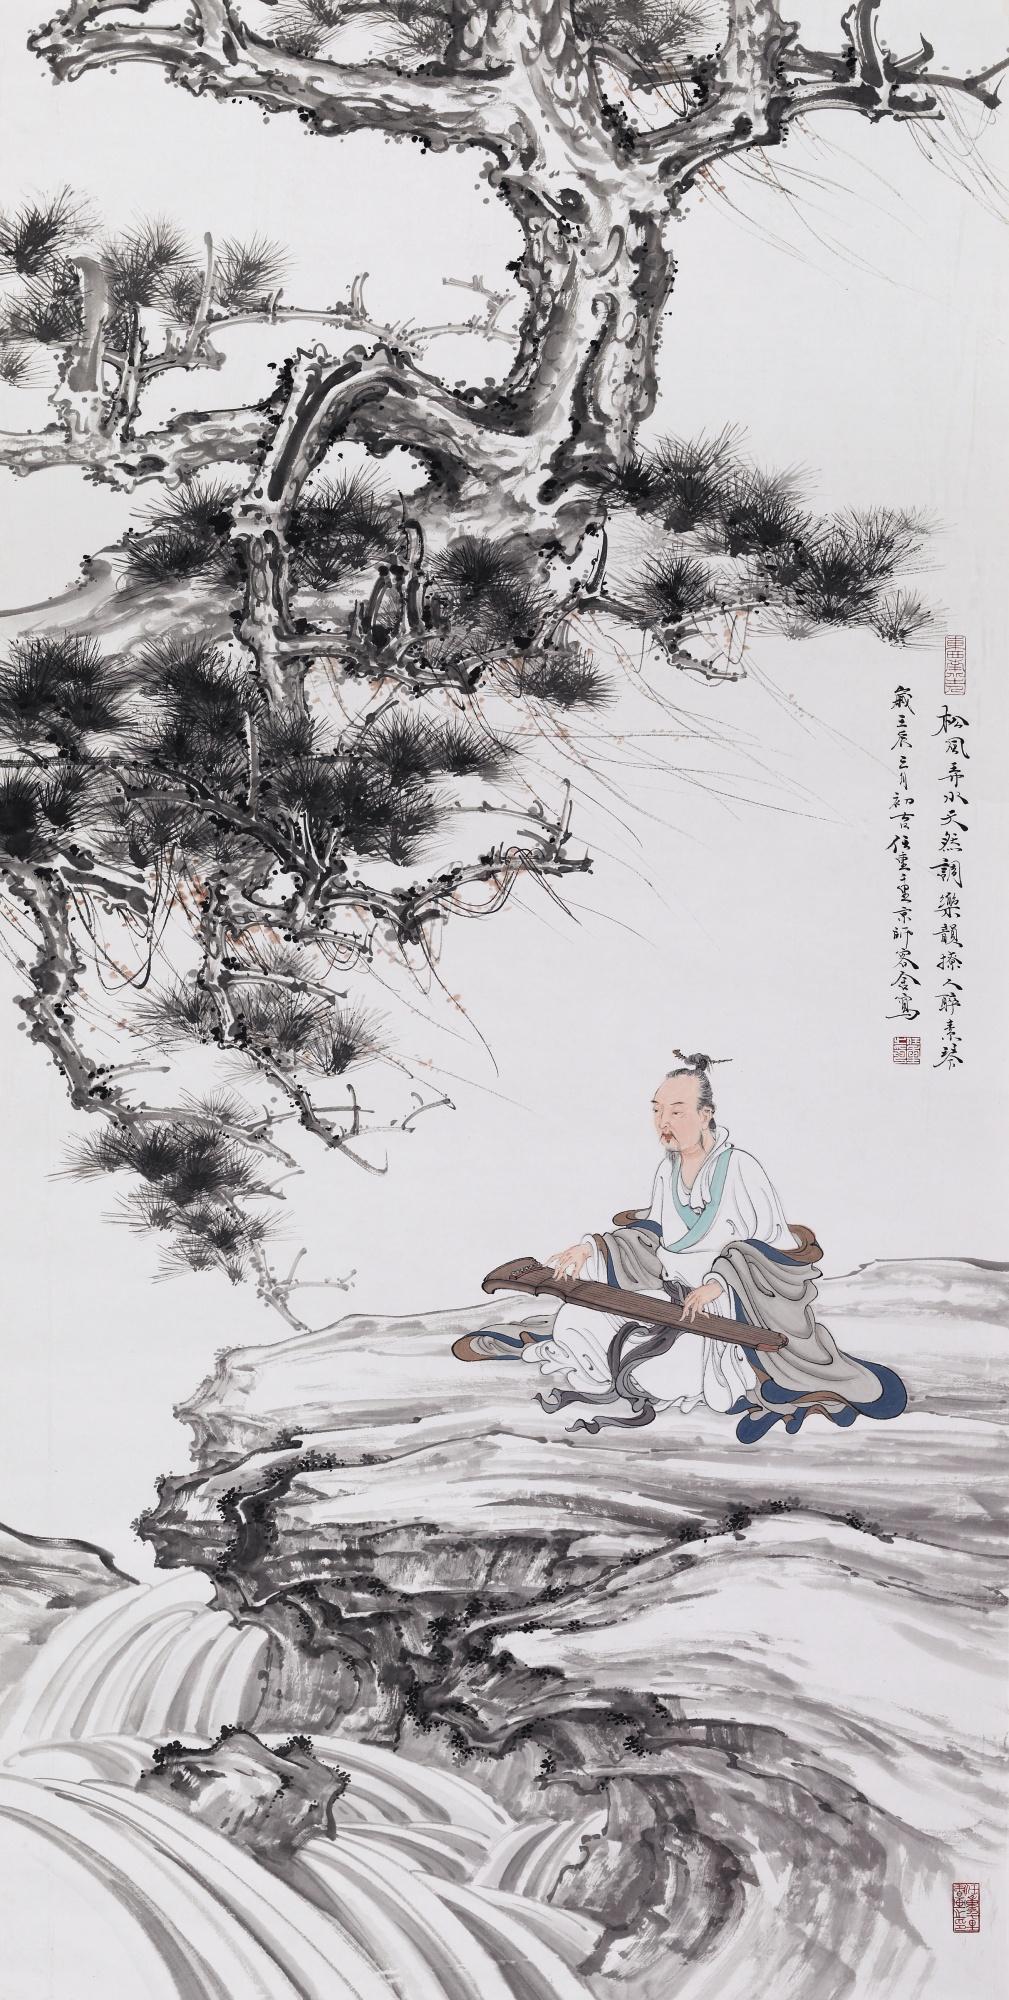 松風弄水天然調樂韻撩人醉素琴
歲壬辰三月初吉任重于墨京師客舍寫